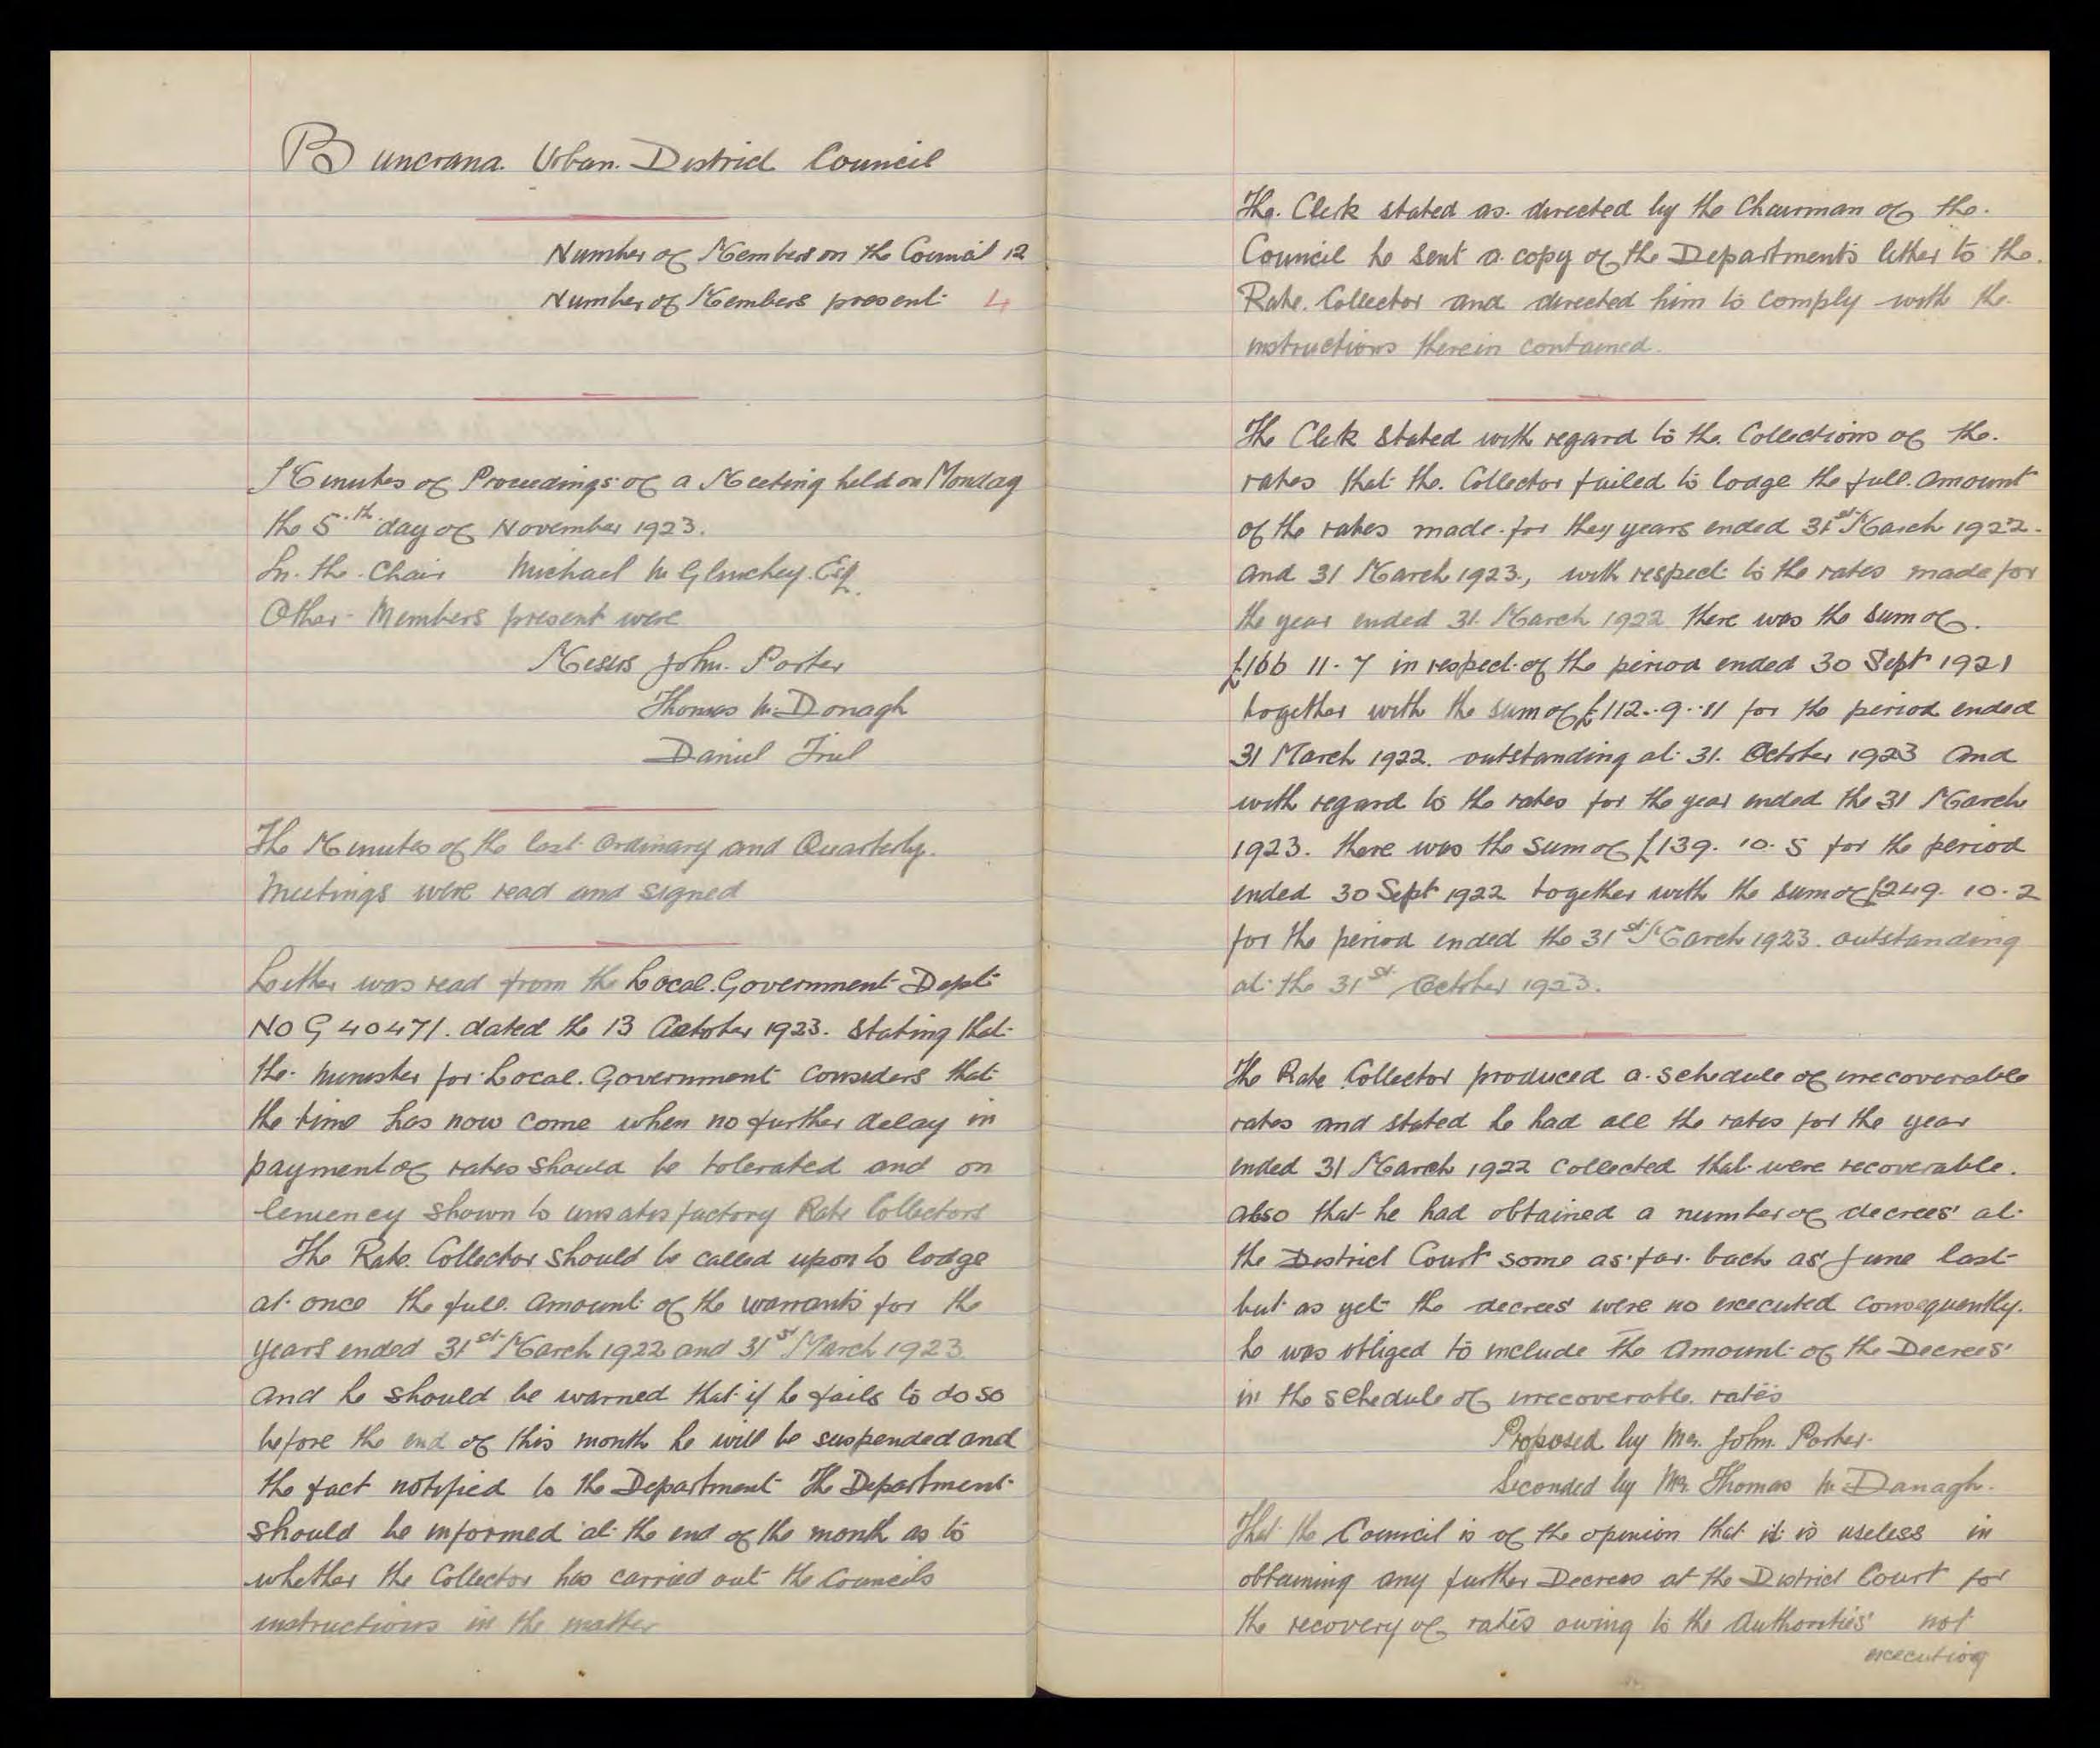 Buncrana Urban District Council
Number of Members on the Council 12
Number of Members present 4
Minutes of Proceedings of a Meeting held on Monday
the 5th day of November 1923.
In the Chair Michael McGlinchey Esq.
Other Members present were
Messrs John Porter
Thomas McDonagh
Daniel Friel
The Minutes of the last Ordinary and Quarterly
Meetings were read and signed
Letter was read from the Local Government Dept
No G 40471. dated the 13 October 1923. stating that
the Minister for Local Government considers that
the time has now come when no further delay in
payment of rates should be tolerated and on
leniency shown to unsatisfactory Rate Collectors
The Rate Collector should be called upon to lodge
at once the full amount of the warrants for the
years ended 31st March 1922 and 31st March 1923
and he should be warned that if he fails to do so
before the end of this month he will be suspended and
the fact notified to the Department The Department
should be informed at the end of the month as to
whether the Collector has carried out the Councils
instructions in the matter
The Clerk stated as directed by the Chairman of the
Council he sent a copy of the Department's letter to the
Rate Collector and directed him to comply with the
instructions therein contained.
The Clerk stated with regard to the Collections of the
rates that the Collector failed to lodge the full amount
of the rates made for they years ended 31st March 1922
and 31 March 1923, with respect to the rates made for
the year ended 31 March 1922 there was the sum of
£166 11-7 in respect of the period ended 30 Sept 1921
together with the sum of £112..9..11 for the period ended
31 March 1922. outstanding at 31. October 1923 and
with regard to the rates for the year ended the 31 March
1923. there was the sum of £139. 10. 5 for the period
ended 30 Sept 1922 together with the sum of £249. 10. 2
for the period ended the 31st March 1923. outstanding
at the 31st October 1923.
The Rate Collector produced a schedule of irrecoverable
rates and stated he had all the rates for the year
ended 31 March 1922 collected that were recoverable.
also that he had obtained a number of decrees at
the District Court some as far back as June last
but as yet the decrees were no executed consequently
he was obliged to include the amount of the Decrees
in the schedule of irrecoverable rates
Proposed by Mr. John Porter.
Seconded by Mr. Thomas McDanagh.
That the Council is of the opinion that it is useless in
obtaining any further Decrees at the District Court for
the recovery of rates owing to the Authorities not
executing